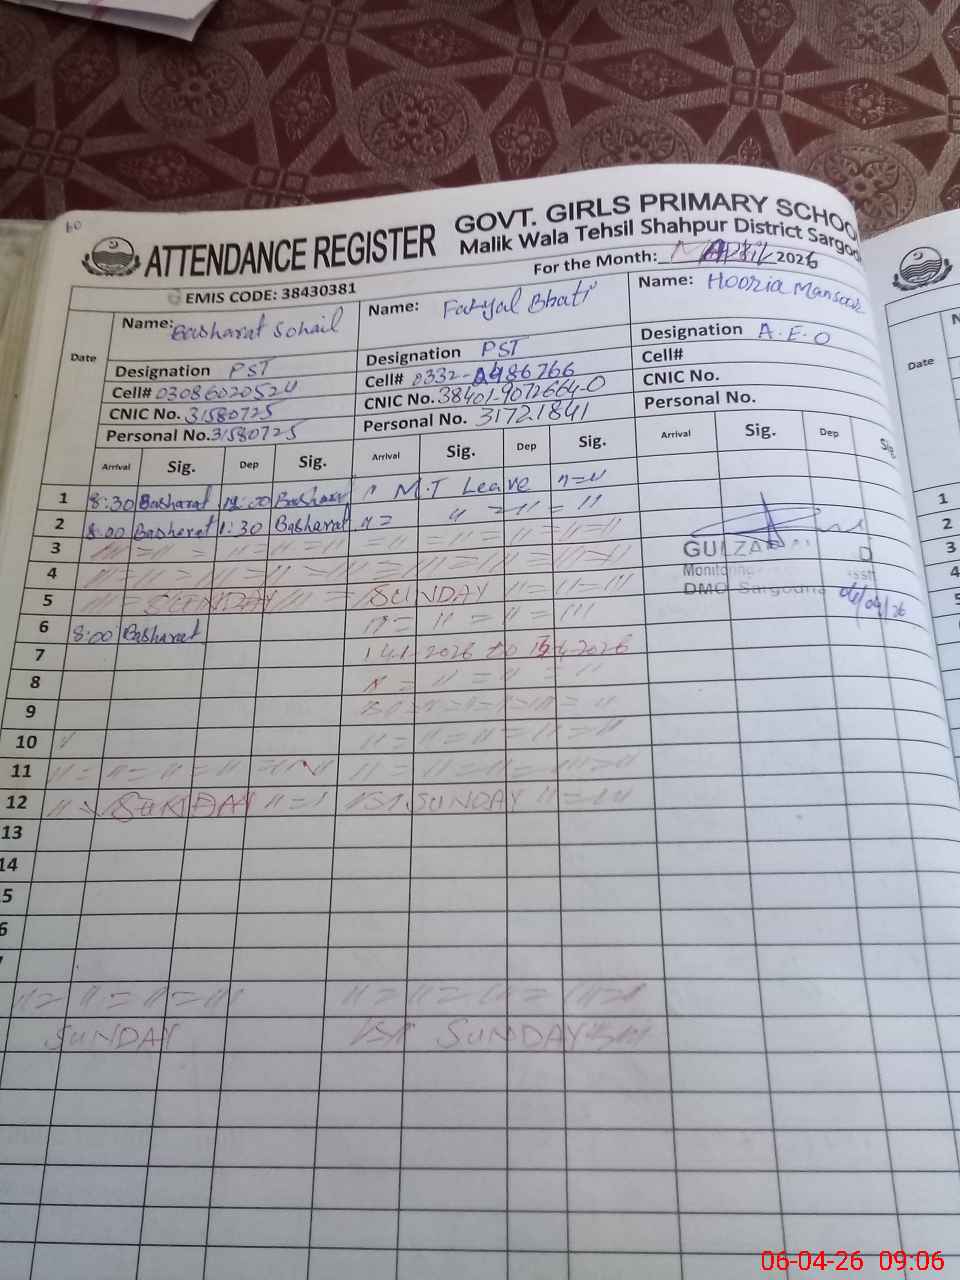 60
ATTENDANCE REGISTER
GOVT. GIRLS PRIMARY SCHOO
Malik Wala Tehsil Shahpur District Sargod
For the Month: APRIL 2026
EMIS CODE: 38430381
Date
Name: Basharat Sohail
Name: Faryal Bhati
Name: Hooria Mansoor
Designation PST
Designation PST
Designation A.E.O
Cell# 03086020524
Cell# 0332-2486766
Cell#
CNIC No. 31580725
CNIC No. 38401-9072664-0
CNIC No.
Personal No. 31580725
Personal No. 31721841
Personal No.
Arrival Sig. Dep Sig. Arrival Sig. Dep Sig. Arrival Sig. Dep Sig
1 8:30 Basharat Basharat M.T Leave
2 8:00 Basharat 1:30 Basharat
3
4
5 SUNDAY SUNDAY
6 8:00 Basharat
7
8
9
10
11
12 SUNDAY SUNDAY
13
14
5
6
SUNDAY SUNDAY
GULZA
Monitoring
DMO Sargodha 06/04/26
Date
1
2
3
4
06-04-26 09:06